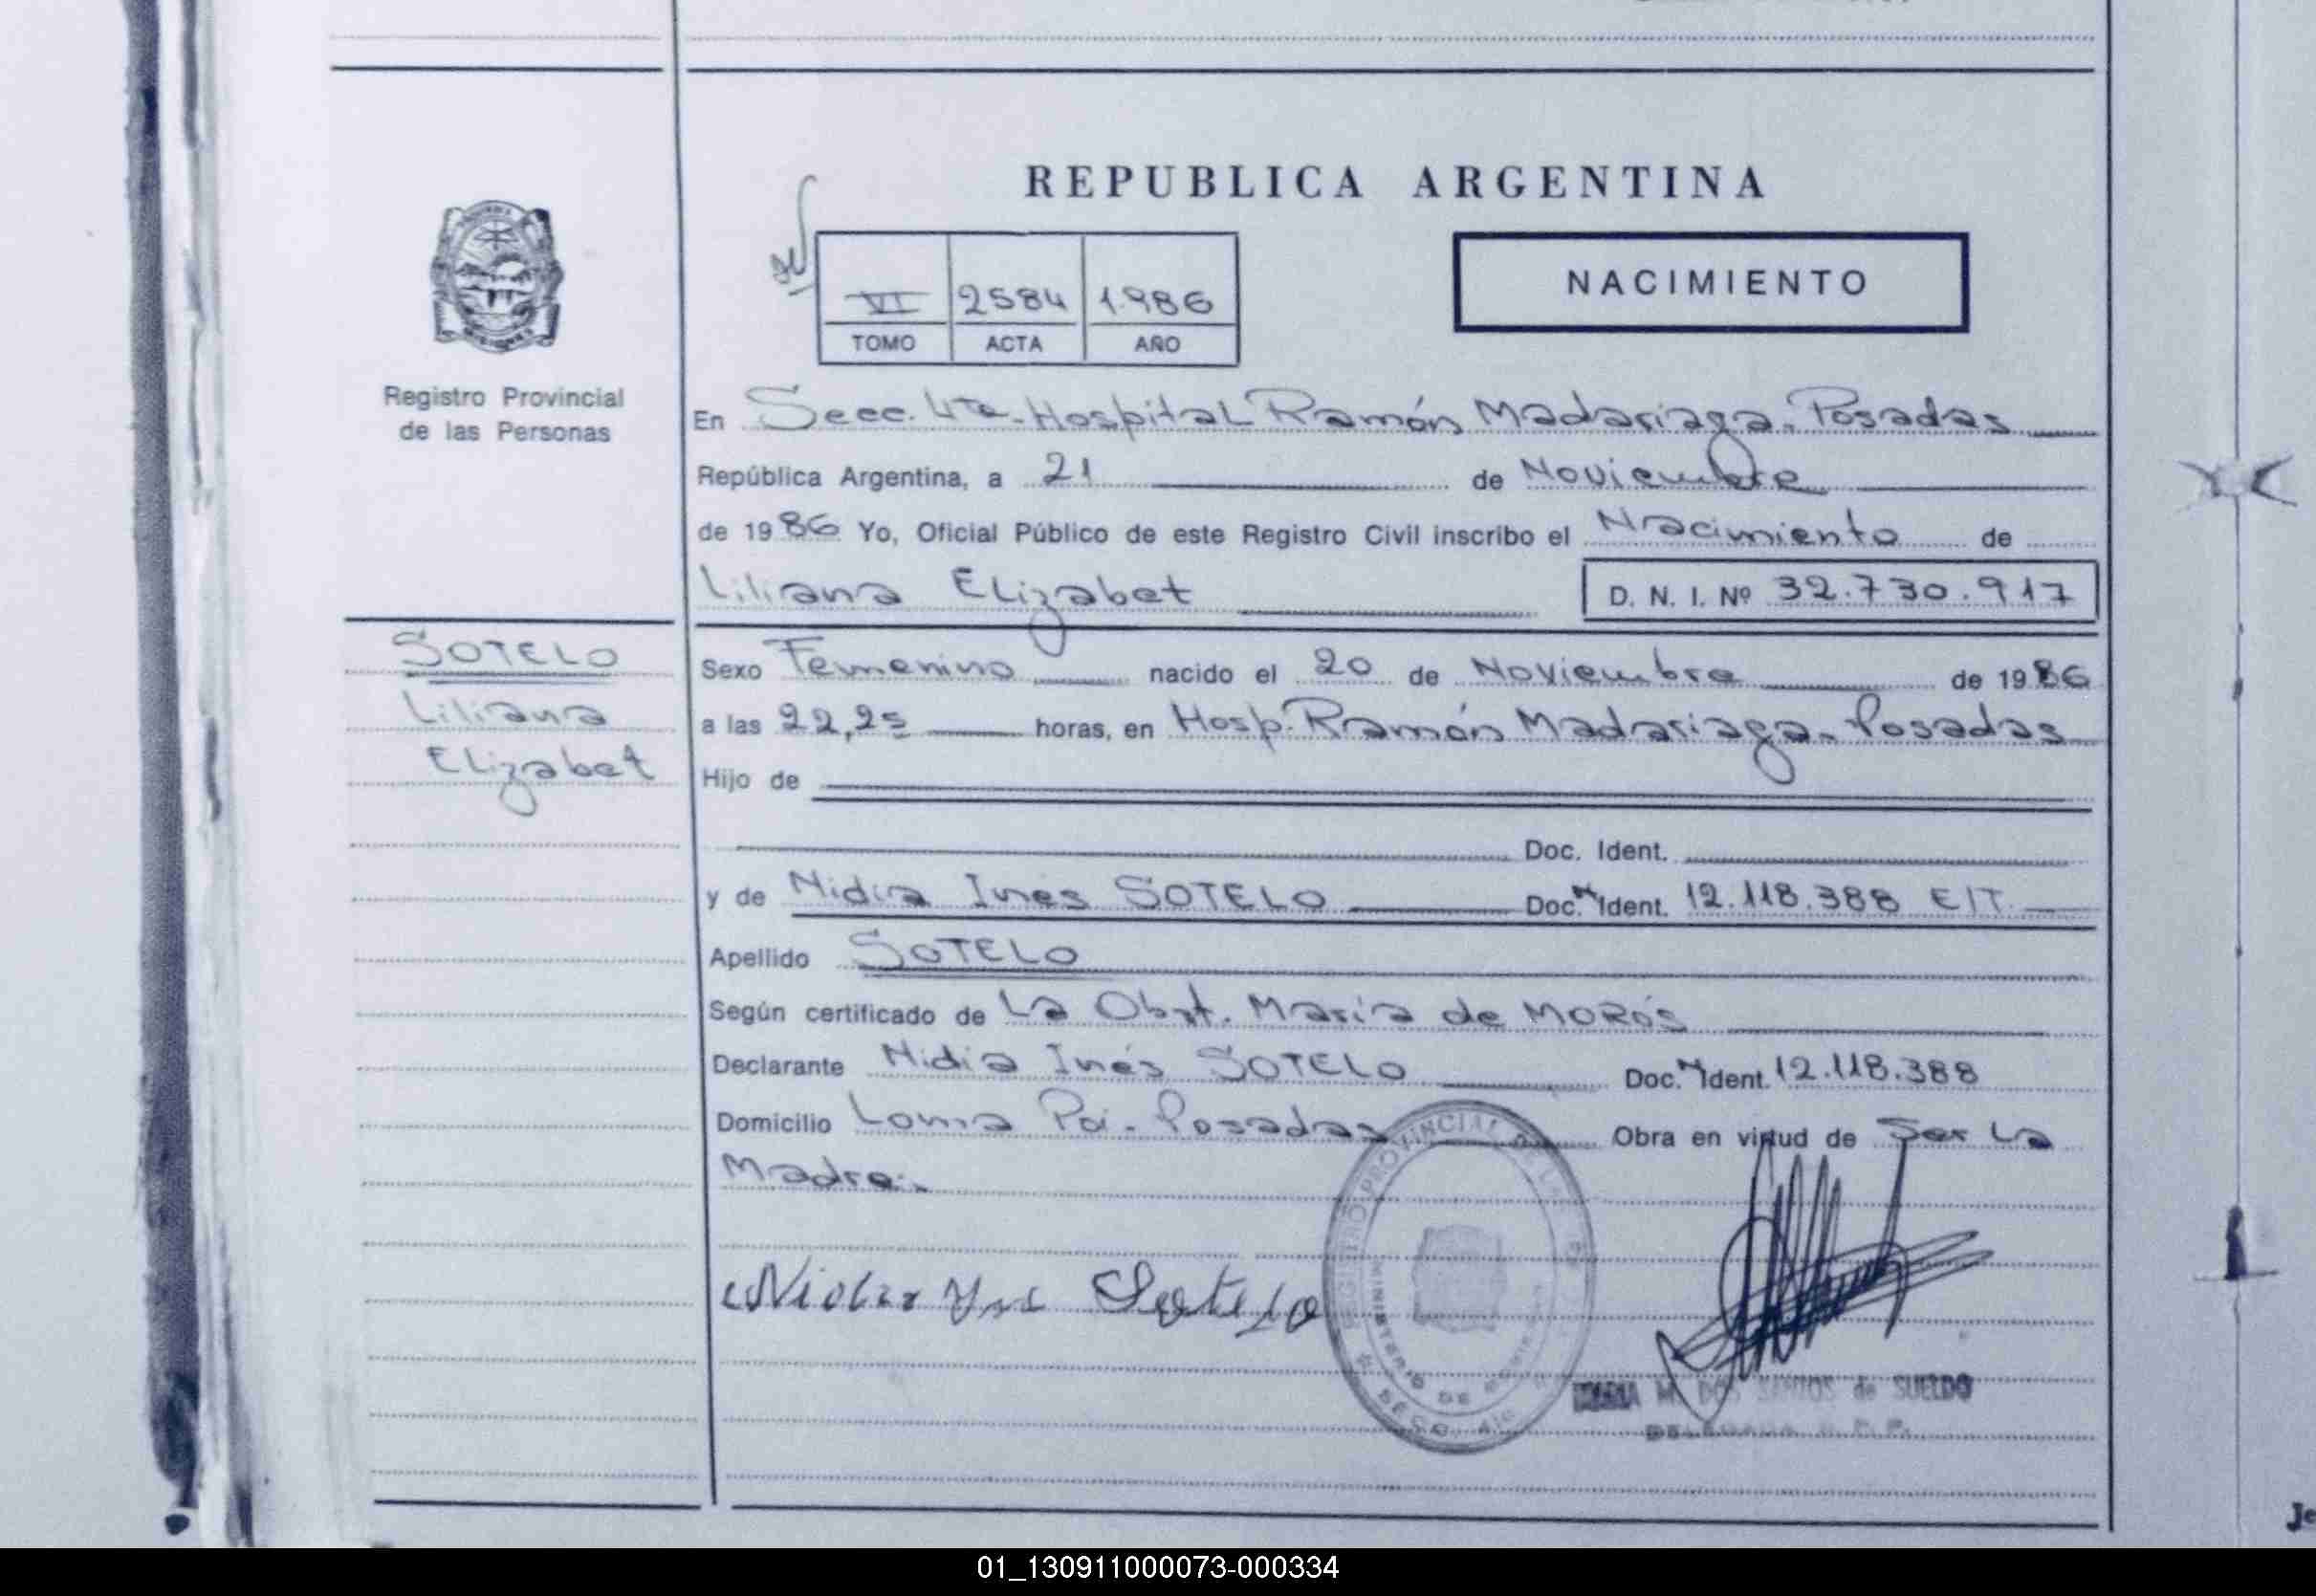 REPUBLICA ARGENTINA
NACIMIENTO
VI 2584 1.986
TOMO ACTA AÑO
Registro Provincial
de las Personas
En Secc. 4ta. Hospital Ramón Madariaga. Posadas
República Argentina, a 21 de Noviembre
de 1986 Yo, Oficial Público de este Registro Civil inscribo el Nacimiento de
Liliana Elizabet D. N. I. Nº 32.730.917
SOTELO
Liliana
Elizabet
Sexo Femenino nacido el 20 de Noviembre de 1986
a las 22,25 horas, en Hosp. Ramón Madariaga. Posadas
Hijo de
Doc. Ident.
y de Nidia Inés SOTELO Doc. Ident. 12.118.388 E/T.
Apellido SOTELO
Según certificado de La Obst. María de MORÓS
Declarante Nidia Inés SOTELO Doc. Ident. 12.118.388
Domicilio Loma Poi. Posadas Obra en virtud de Ser La
Madre.
REGISTRO PROVINCIAL DE LAS
MINISTERIO DE
SECC. 4ta
MARIA M. DOS SANTOS de SUELDO
DELEGADA
Je
01_130911000073-000334